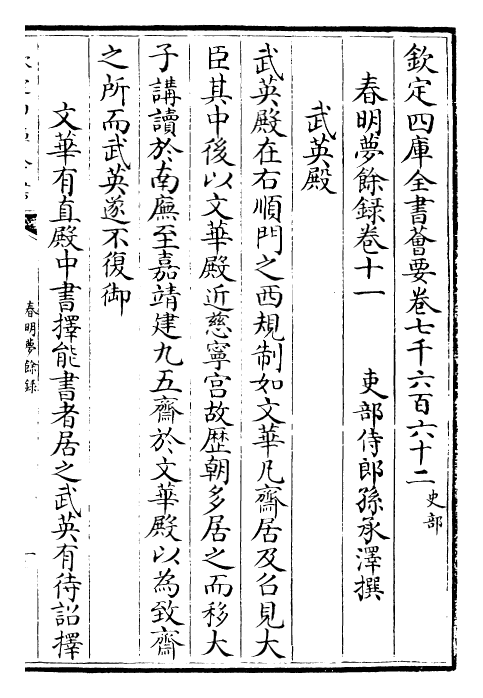 欽定四庫全書薈要卷七千六百六十二 史部
春明夢餘録卷十一 吏部侍郎孫承澤撰
武英殿
武英殿在右順門之西規制如文華凡齋居及召見大
臣其中後以文華殿近慈寧宫故歴朝多居之而移大
子講讀於南廡至嘉靖建九五齋於文華殿以為致齋
之所而武英遂不復御
文華有直殿中書擇能書者居之武英有待詔擇
春明夢餘録
一